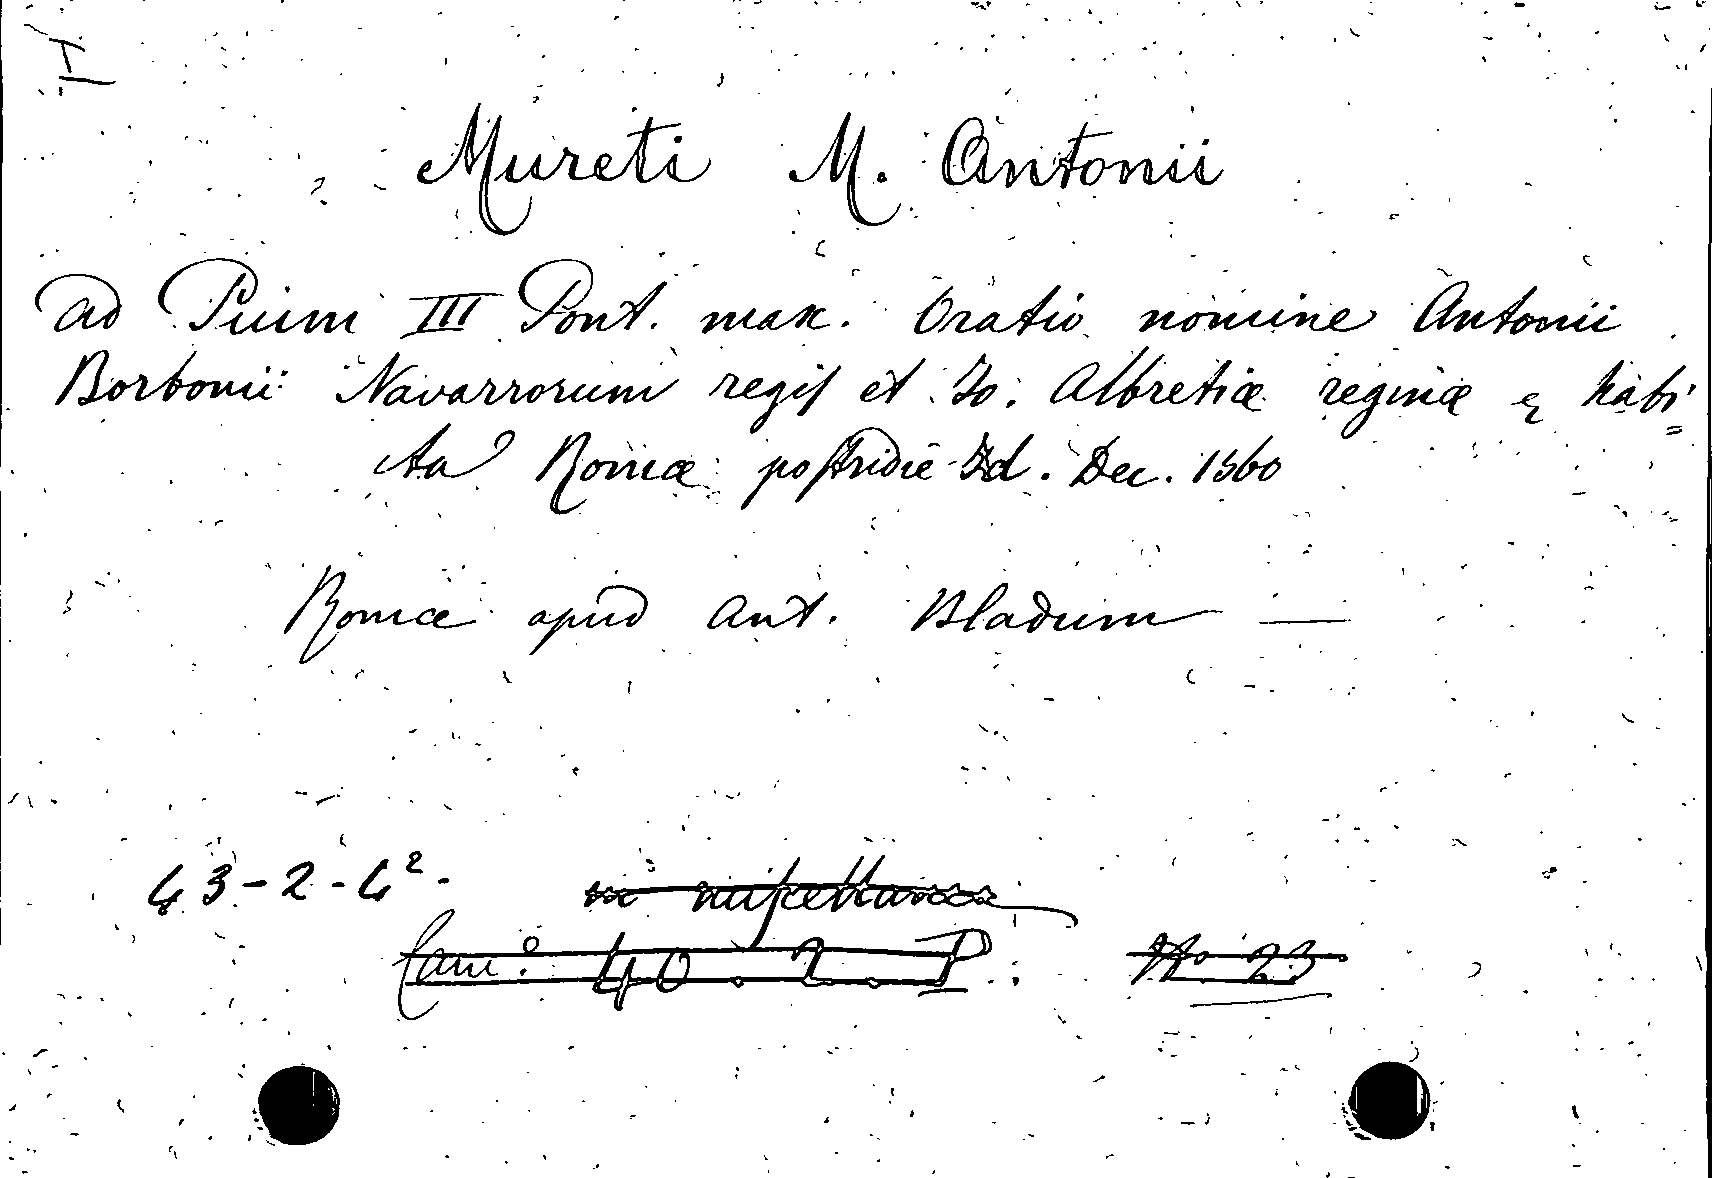 H
Mureti M. Antonii
ad Pium III Pont. max. Oratio nomine Antonii
Borbonii Navarrorum regis et Io. Albretiæ reginæ & habi=
ta Romæ postridie Id. Dec. 1560
Romæ apud Ant. Bladum —
43-2-4²-
in miscellanea
Cam.º 40.2.P. Nº 23